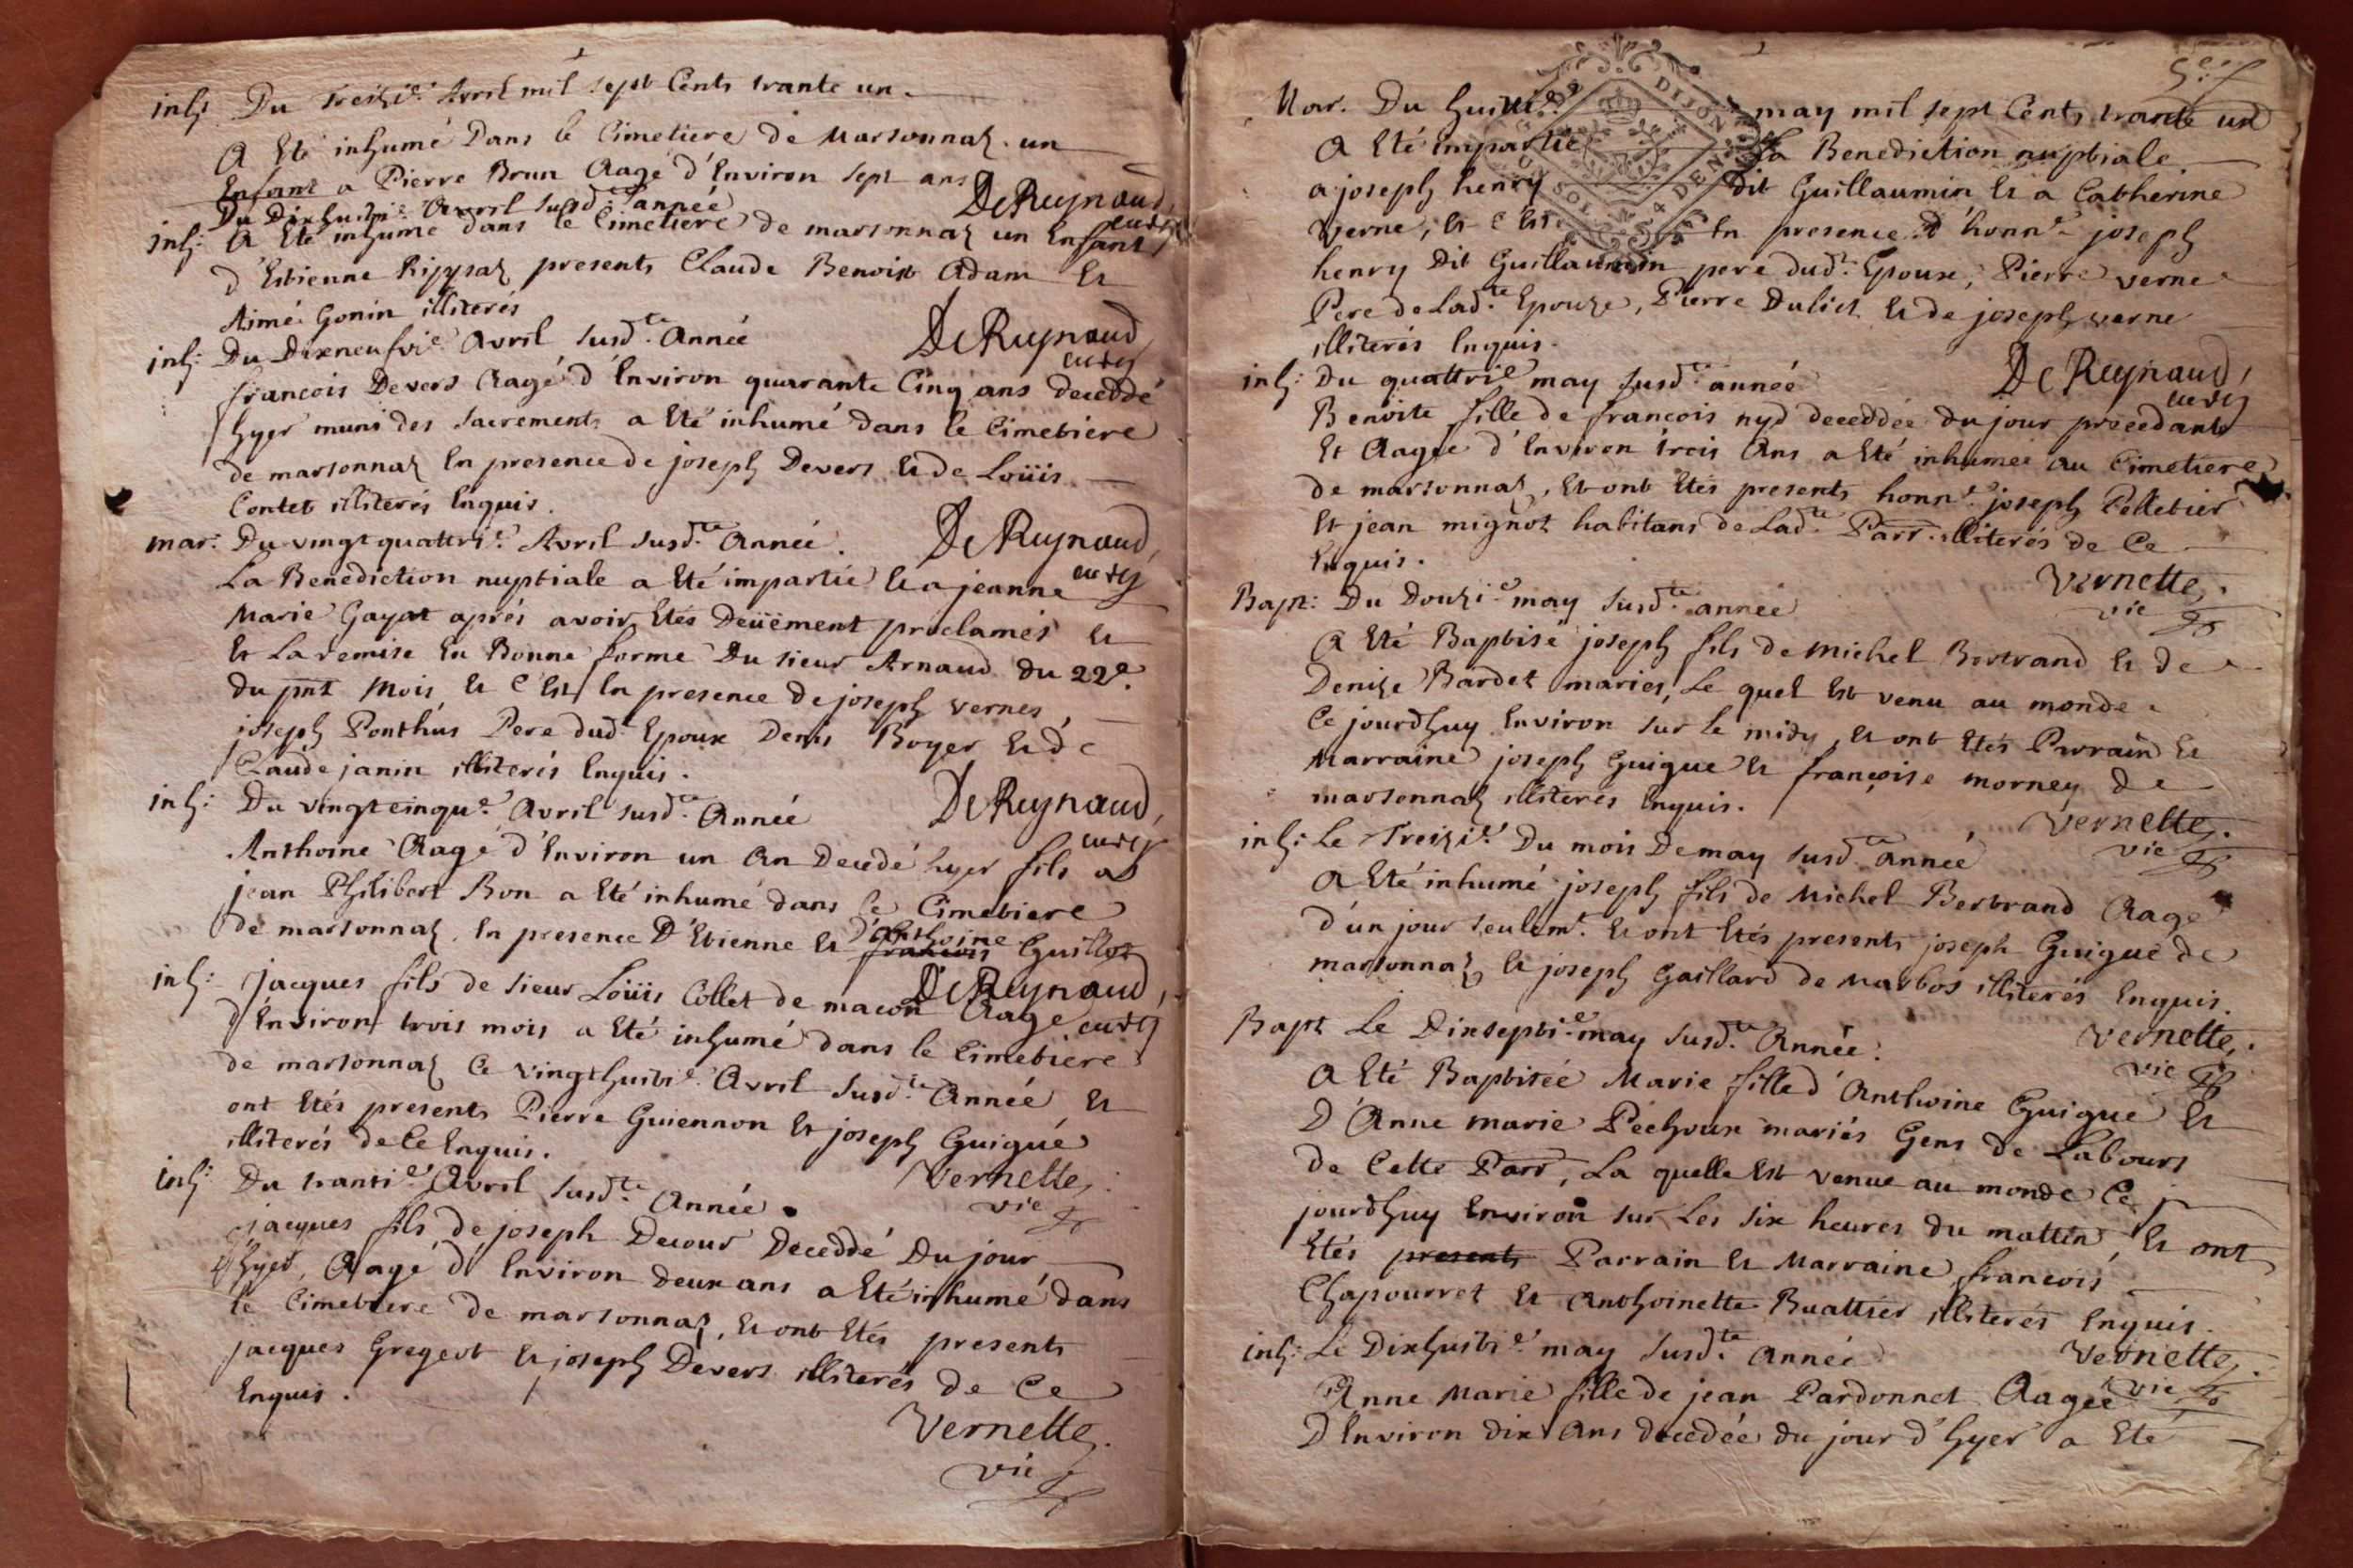 inh: Du Treizi.e Avril mil sept Cents trante un.
A Eté inhumé Dans le Cimetiere de Marsonnaz un
Enfant a Pierre Brun Aagé d'Environ sept ans
DeReynaud,
curé
Du Dixhuiti.e Avril susd.te année
inh: A Eté inhumé dans le Cimetiere de marsonnaz un Enfant
d'Estienne presents Claude Benoist Adam Et
Aimé Gonin illiterés
DeReynaud
curé
inh: Du Dixneufvi.e Avril susd.te Année
francois Devers Aagé d'Environ quarante Cinq ans deceddé
hyer muni des sacrements a Eté inhumé dans le Cimetiere
de marsonnaz En presence de joseph Devers Et de Loüis
Contet illiterés Enquis.
DeReynaud,
curé
mar: Du vingt quattri.e Avril susd.te Année.
La Benediction nuptiale a Eté impartie Et a jeanne
Marie Gayat aprés avoir Etés Deüement proclamés Et
Et La remise En Bonne forme Du sieur Arnaud du 22e.
du pnt Mois Et C'Est En presence de joseph vernes,
joseph Ponthus Pere dud. Epoux Denis Boyer Et de
Claude janin illiterés Enquis.
DeReynaud,
curé
inh: Du vingtcinqu.e Avril susd.te Année
Anthoine Aagé d'Environ un An Decedé hyer fils a
jean Philibert Bon a Eté inhumé dans le Cimetiere
de marsonnaz. En presence D'Etienne Et francois d'Anthoine Guillot
DeReynaud,
curé
inh: jacques fils de sieur Loüis Collet de macon Aagé
d'Environ trois mois a Eté inhumé dans le Cimetiere
de marsonnaz Ce vingthuiti.e Avril susd.te Année Et
ont Etés presents Pierre Guiennon Et joseph Guigue
illiterés de Ce Enquis.
Vernette,
vic
inh: Du tranti.e Avril susd.te Année.
jacques fils de joseph Decour Deceddé Du jour
d'hyer, Aagé d'Environ deux ans a Eté inhumé dans
le Cimetiere de marsonnaz, Et ont Etés presents
jacques Gregert Et joseph Devers illiterés de Ce
Enquis.
Vernette,
vic
Mar. Du may mil sept Cents trante un
A Eté impartie La Benediction nuptiale
a joseph henry dit Guillaumin Et a Catherine
Verne, Et C'Est En presence d'honn.e joseph
henry Dit Guillaumin pere dud.t Epoux, Pierre verne
Pere de Lad.te Epouze, Pierre Duliet Et de joseph verne
illiterés Enquis.
DeReynaud,
curé
inh: Du quattri.e may susd.te année
Benoite fille de francois nyd deceddée du jour precedant
Et Aagée d'Environ trois Ans a Eté inhumée au Cimetiere
de marsonnaz, Et ont Etés presents honn.e joseph Pelletier
Et jean mignot habitans de Lad.te Parr. illiterés de Ce
Enquis.
Vernette,
vic
Bapt: Du Douzi.e may susd.te année
A Eté Baptisé joseph fils de Michel Bertrand Et de
Denize Bardet mariés, Le quel Est venu au monde
Ce jourd'huy Environ sur le midy, Et ont Etés Parrain Et
Marraine joseph Guigue Et françoise morney de
marsonnaz illiterés Enquis.
Vernette,
vic
inh: Le Treizi.e Du mois De may susd.te année
A Eté inhumé joseph fils de Michel Bertrand Aagé
d'un jour seulemt. Et ont Etés presents joseph Guigue de
marsonnaz Et joseph Gaillard de Marbos illiterés Enquis.
Vernette,
vic
Bapt Le Dixsepti.e may susd.te Année.
A Eté Baptisée Marie fille d'Anthoine Guigue Et
D'Anne marie Pechoux mariés Gens de Labours
de Cette Parr, La quelle Est venue au monde Ce
jourd'huy Environ sur Les six heures du mattin, Et ont
Etés presents Parrain Et Marraine francois
Chapourret Et Anthoinette Buattier illiterés Enquis.
Vernette,
vic
inh: Le Dixhuiti.e may susd.te année
Anne Marie fille de jean Pardonnet Aagée
D'Environ dix Ans decedée du jour d'hyer a Eté